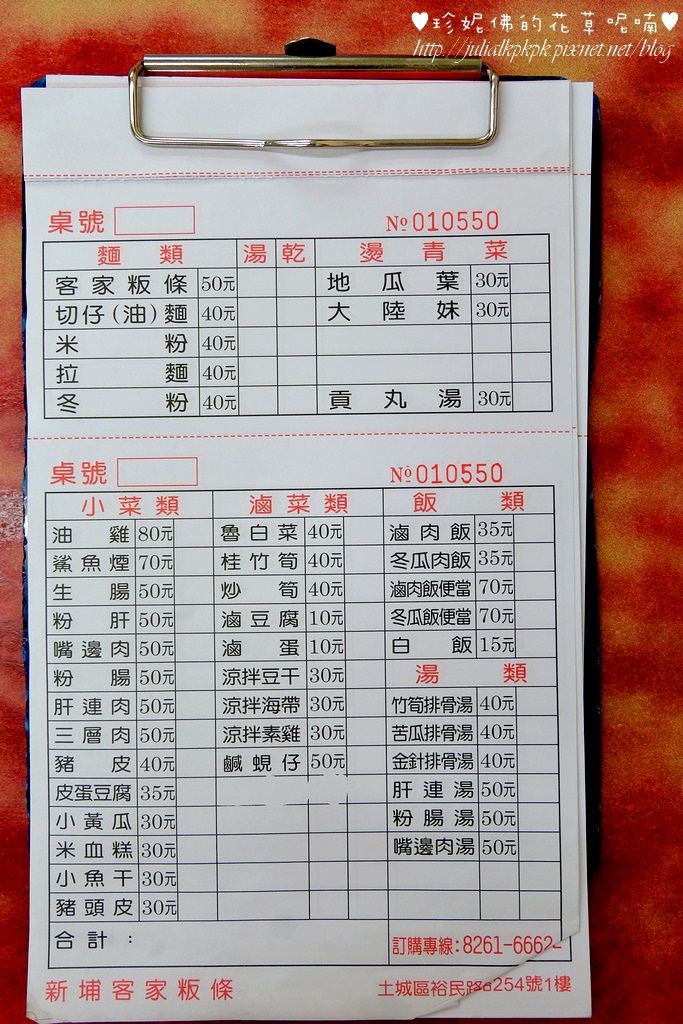 ♥珍妮佛的花草呢喃♥
http://julialkpkpk.pixnet.net/blog
桌號 №010550
麵類 湯 乾 燙青菜
客家粄條 50元 地瓜葉 30元
切仔(油)麵 40元 大陸妹 30元
米粉 40元
拉麵 40元
冬粉 40元 貢丸湯 30元
桌號 №010550
小菜類 滷菜類 飯類
油雞 80元 魯白菜 40元 滷肉飯 35元
鯊魚煙 70元 桂竹筍 40元 冬瓜肉飯 35元
生腸 50元 炒筍 40元 滷肉飯便當 70元
粉肝 50元 滷豆腐 10元 冬瓜飯便當 70元
嘴邊肉 50元 滷蛋 10元 白飯 15元
粉腸 50元 涼拌豆干 30元 湯類
肝連肉 50元 涼拌海帶 30元 竹筍排骨湯 40元
三層肉 50元 涼拌素雞 30元 苦瓜排骨湯 40元
豬皮 40元 鹹蜆仔 50元 金針排骨湯 40元
皮蛋豆腐 35元 肝連湯 50元
小黃瓜 30元 粉腸湯 50元
米血糕 30元 嘴邊肉湯 50元
小魚干 30元
豬頭皮 30元
合計： 訂購專線:8261-6662
新埔客家粄條 土城區裕民路254號1樓